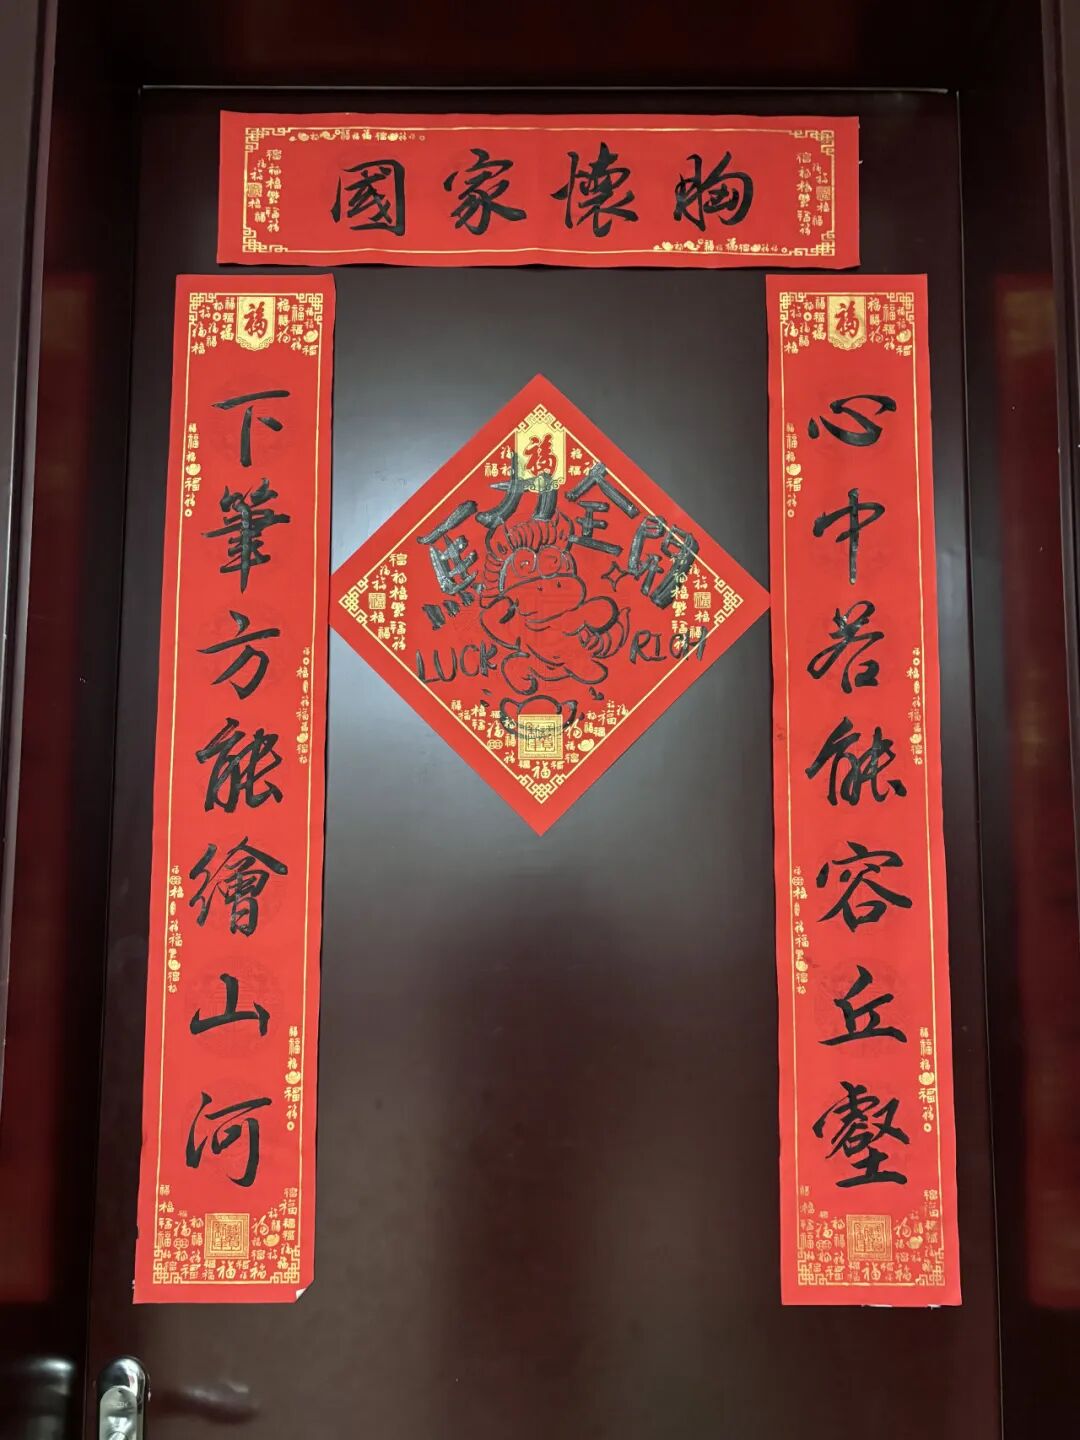 胸懷家國
福
心中若能容丘壑
福
下筆方能繪山河
福
馬力全開
LUCK RICH